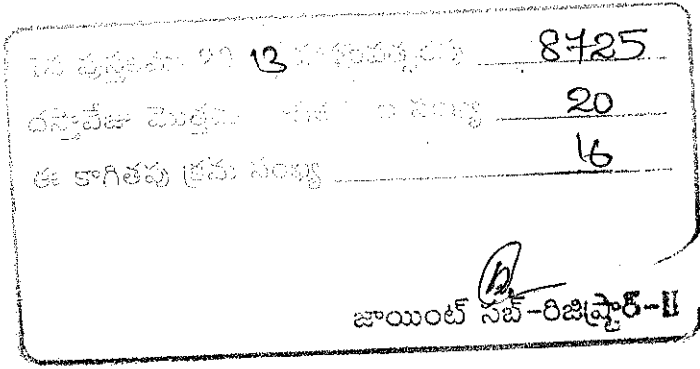 1వ పుస్తకము 20 13 8725
దస్తావేజు మొత్తము సంఖ్య 20
ఈ కాగితపు క్రమ సంఖ్య 16
జాయింట్ సబ్-రిజిస్ట్రార్-II